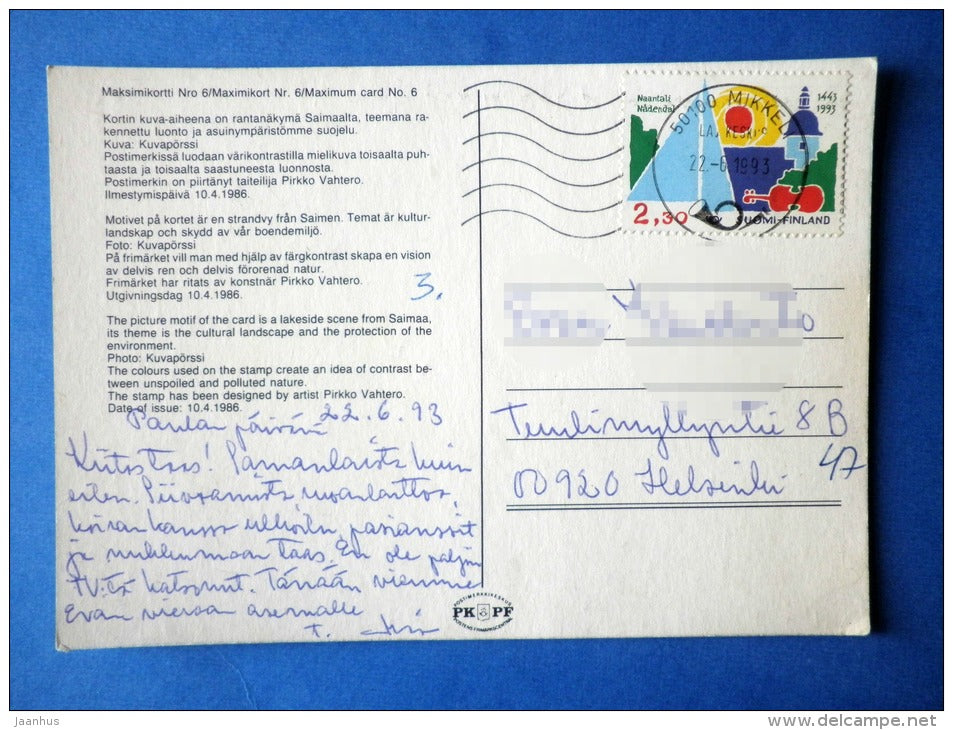 Maksimikortti Nro 6/Maximikort Nr. 6/Maximum card No. 6
Kortin kuva-aiheena on rantanäkymä Saimaalta, teemana ra-
kennettu luonto ja asuinympäristömme suojelu.
Kuva: Kuvapörssi
Postimerkissä luodaan värikontrastilla mielikuva toisaalta puh-
taasta ja toisaalta saastuneesta luonnosta.
Postimerkin on piirtänyt taiteilija Pirkko Vahtero.
Ilmestymispäivä 10.4.1986.
Motivet på kortet är en strandvy från Saimen. Temat är kultur-
landskap och skydd av vår boendemiljö.
Foto: Kuvapörssi
På frimärket vill man med hjälp av färgkontrast skapa en vision
av delvis ren och delvis förorenad natur.
Frimärket har ritats av konstnär Pirkko Vahtero.
Utgivningsdag 10.4.1986.
3.
The picture motif of the card is a lakeside scene from Saimaa,
its theme is the cultural landscape and the protection of the
environment.
Photo: Kuvapörssi
The colours used on the stamp create an idea of contrast be-
tween unspoiled and polluted nature.
The stamp has been designed by artist Pirkko Vahtero.
Date of issue: 10.4.1986.
Paulan päivänä 22.6.93
Kiitos taas! Samanlaista kuin
eilen. ruoanlaittoa,
koiran kanssa ulkoilu, pasianssit
ja nukkumaan taas. En ole paljon
TV:tä katsonut. Tänään viemme
Evan vieraan asemalle
T.
PK PF
Naantali
Nådendal
1443
1993
50100 MIKKELI
22.-6.1993
2,30
SUOMI-FINLAND
Tuulimyllyntie 8 B
47
00920 Helsinki
Jaanhus
www.delcampe.net